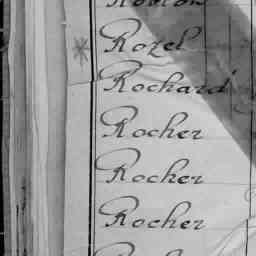 Rozel
Rochard
Rocher
Rocher
Rocher